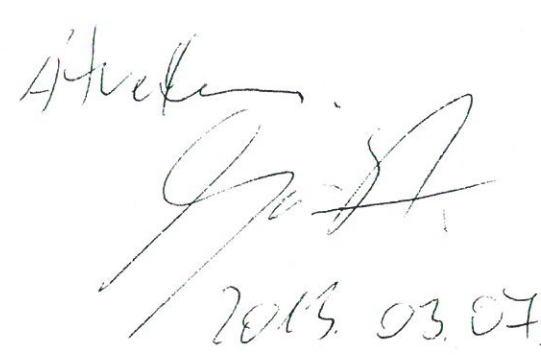 Átvettem.
2013. 03. 07.